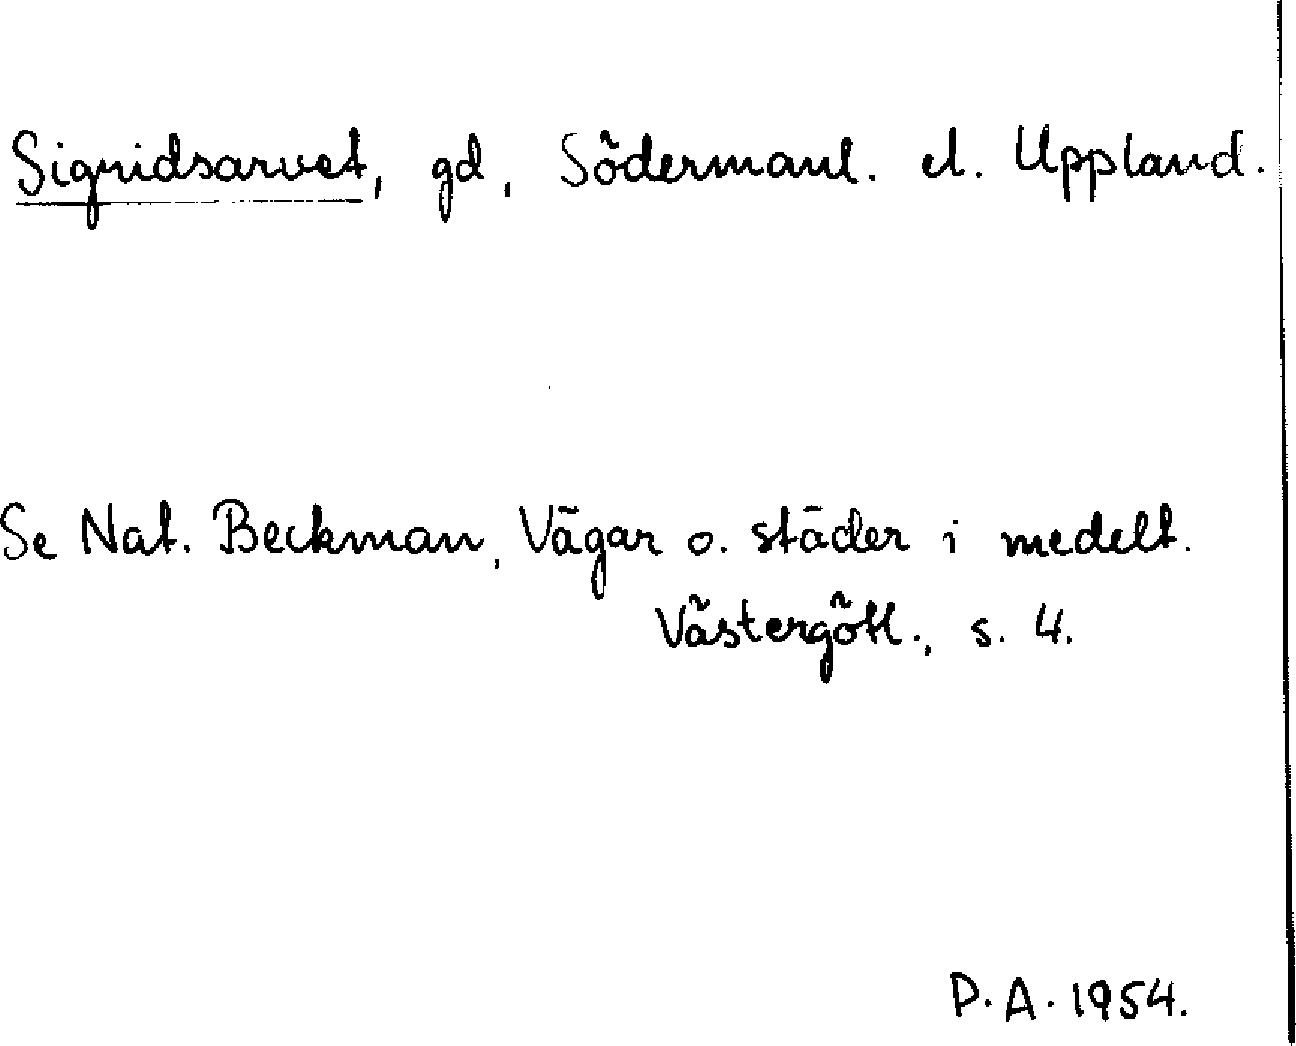 Sigridsarvet, gd, Södermanl. el. Uppland.
Se Nat. Beckman, Vägar o. städer i medelt.
Västergötl., s. 4.
P.A. 1954.